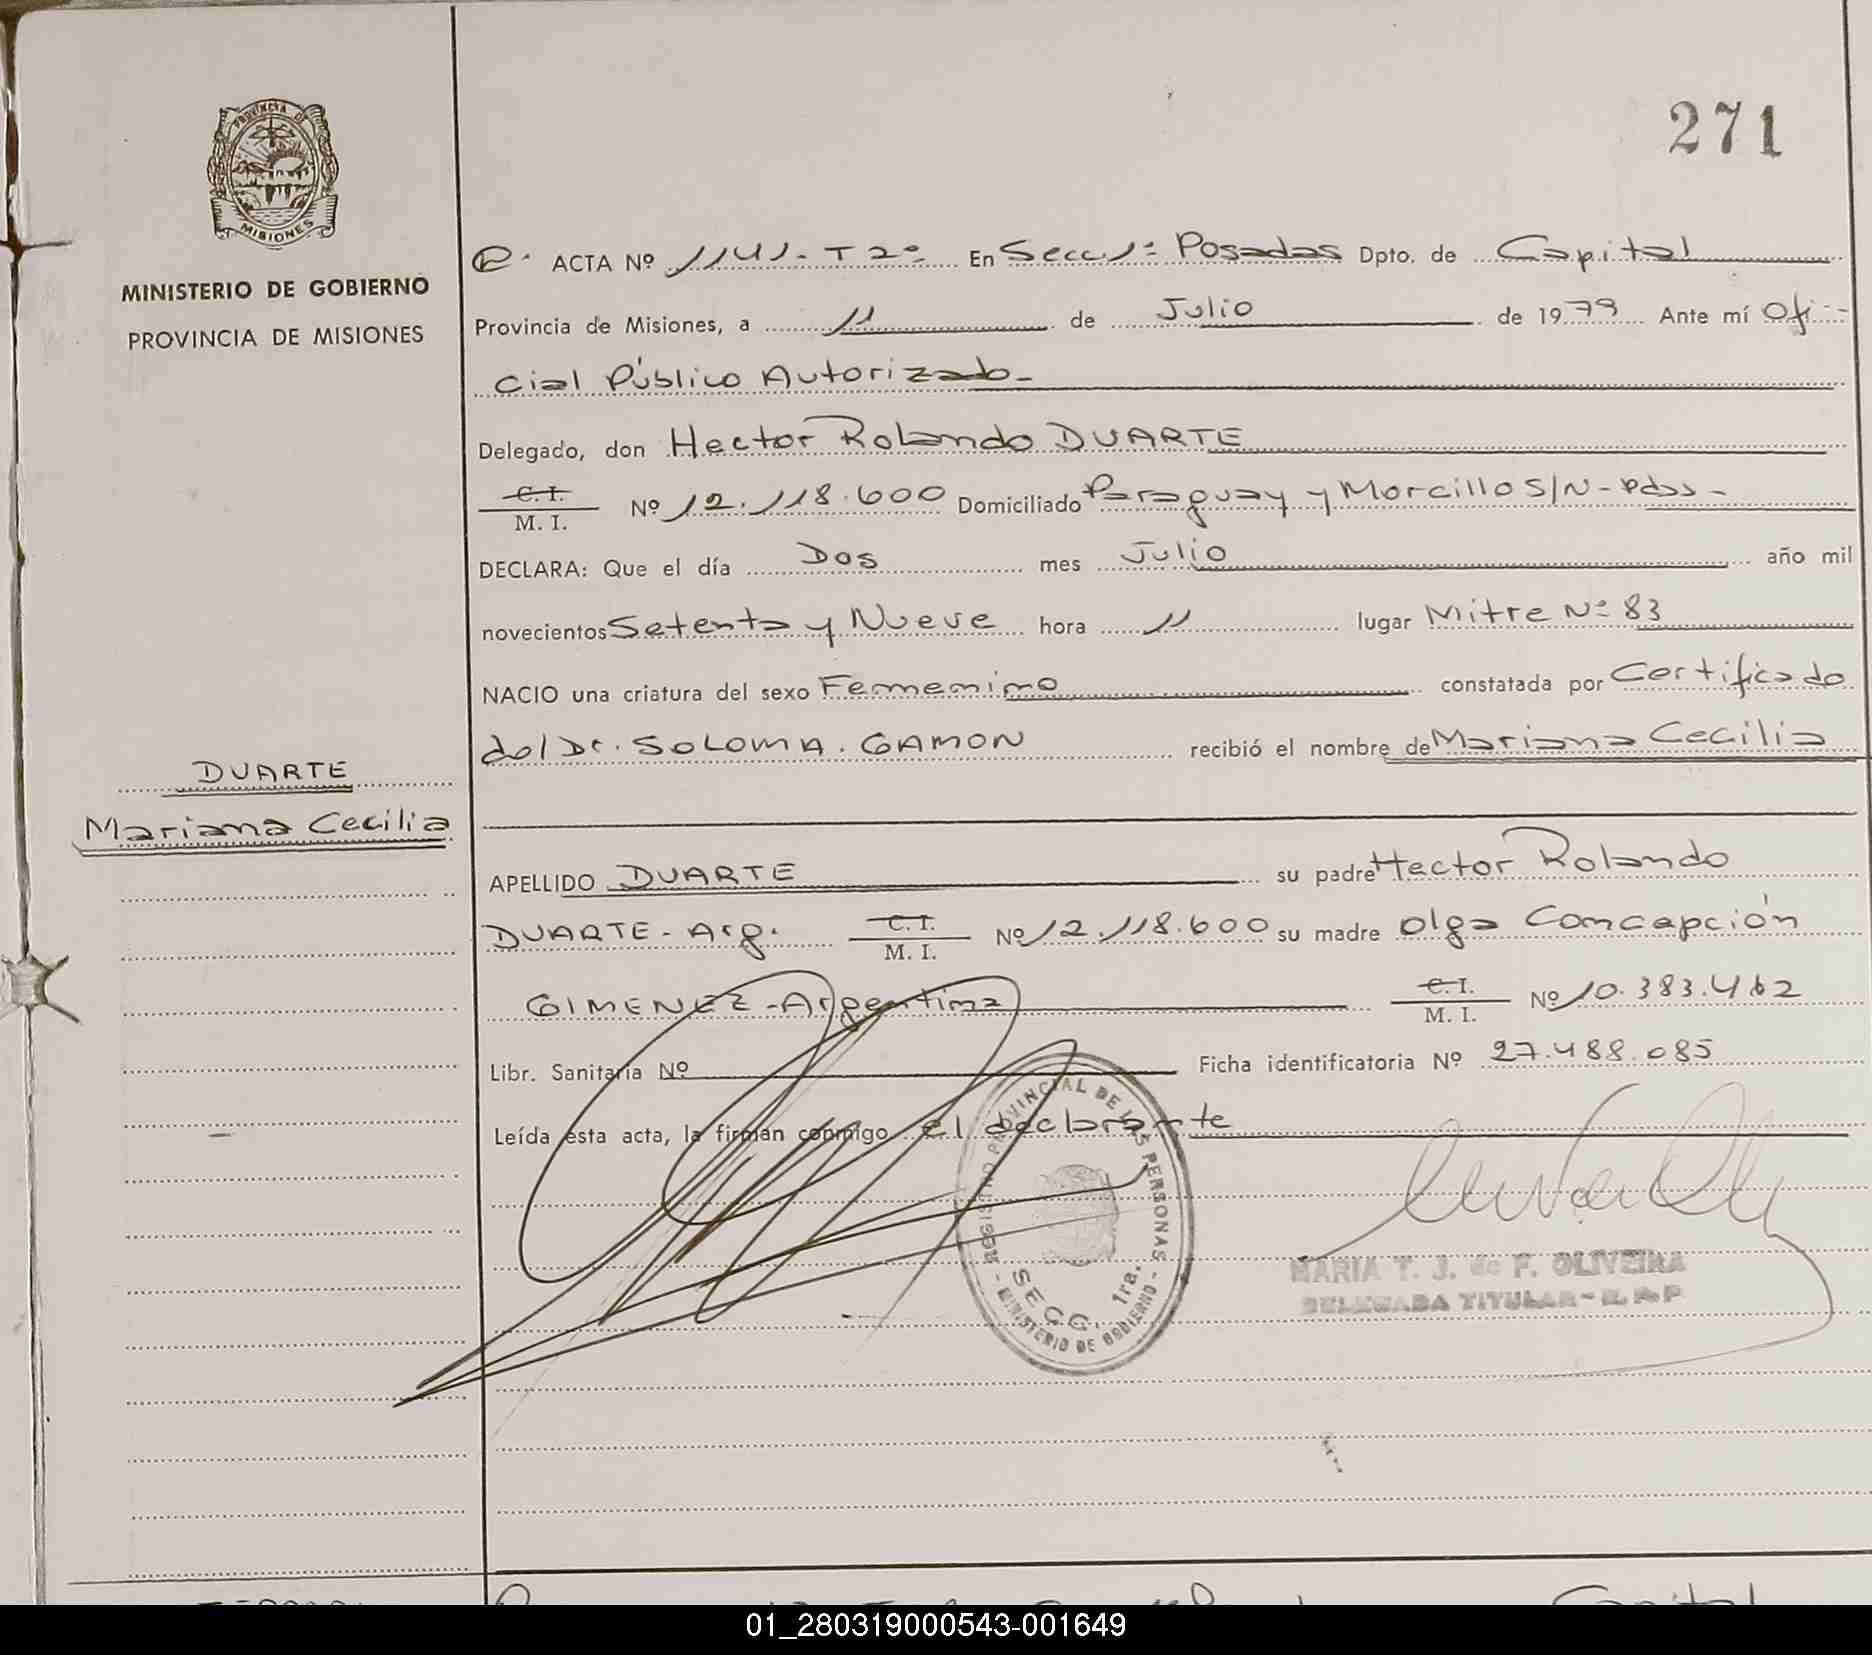 PROVINCIA DE
MISIONES
MINISTERIO DE GOBIERNO
PROVINCIA DE MISIONES
271
ACTA Nº 1141-T2º En Secc. 1ª Posadas Dpto. de Capital
Provincia de Misiones, a 11 de Julio de 1979 Ante mí Ofi-
cial Público Autorizado-
Delegado, don Hector Rolando DUARTE
C. I.
M. I. Nº 12.118.600 Domiciliado Paraguay y Morcillo S/N-Pdas-
DECLARA: Que el día Dos mes Julio año mil
novecientos Setenta y Nueve hora 11 lugar Mitre Nº 83
NACIO una criatura del sexo Femenino constatada por Certificado
del Dr. SOLOMA. GAMON recibió el nombre de Mariana Cecilia
DUARTE
Mariana Cecilia
APELLIDO DUARTE su padre Hector Rolando
DUARTE-Arg. C. I.
M. I. Nº 12.118.600 su madre Olga Concepción
GIMENEZ-Argentina C. I.
M. I. Nº 10.383.462
Libr. Sanitaria Nº Ficha identificatoria Nº 27.488.085
Leída esta acta, la firman conmigo el declarante
REGISTRO PROVINCIAL DE LAS PERSONAS
SECC. 1ra.
- MINISTERIO DE GOBIERNO -
MARIA T. J. de F. OLIVEIRA
DELEGADA TITULAR - R. P. P
Capital
01_280319000543-001649